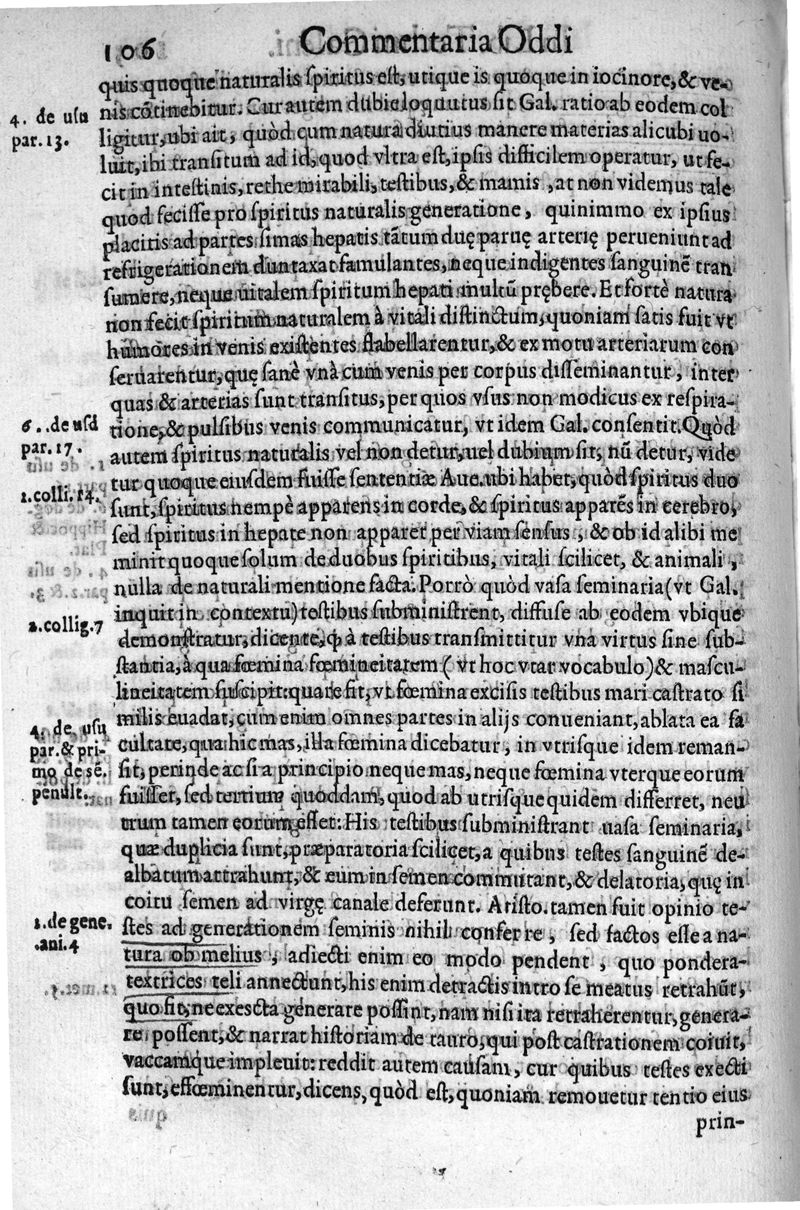 106 Commentaria Oddi
quis quoque naturalis spiritus est, utique is quoque in iocinore, & ve-
4. de usu
par. 13.
nis cõtinebitur. Cur autem dubie loquutus sit Gal. ratio ab eodem col
ligitur, ubi ait, quòd cum natura diutius manere materias alicubi uo-
luit, ibi transitum ad id, quod vltra est, ipsis difficilem operatur, ut fe-
cit in intestinis, rethe mirabili, testibus, & mamis, at non videmus tale
quod fecisse pro spiritus naturalis generatione, quinimmo ex ipsius
placitis ad partes simas hepatis tãtum duę paruę arterię perueniunt ad
refrigerationem duntaxat famulantes, neque indigentes sanguinẽ tran
sumere, neque uitalem spiritum hepati multũ prębere. Et fortè natura
non fecit spiritum naturalem à vitali distinctum, quoniam satis fuit vt
humores in venis existentes flabellarentur, & ex motu arteriarum con
seruarentur, quę sanè vnà cum venis per corpus disseminantur, inter
quas & arterias sunt transitus, per quos vsus non modicus ex respira-
6. de usu
par. 17.
tione, & pulsibus venis communicatur, vt idem Gal. consentit. Quòd
autem spiritus naturalis vel non detur, uel dubium sit, nũ detur, vide
tur quoque eiusdem fuisse sententiæ Aue. ubi habet, quòd spiritus duo
1. colli. 14.
sunt, spiritus nempè apparens in corde, & spiritus apparẽs in cerebro,
sed spiritus in hepate non apparet per viam sensus, & ob id alibi me
minit quoque solum de duobus spiritibus, vitali scilicet, & animali,
nulla de naturali mentione facta. Porrò quòd vasa seminaria (vt Gal.
inquit in contextu) testibus subministrent, diffuse ab eodem vbique
2. collig. 7
demonstratur, dicente, ꝙ à testibus transmittitur vna virtus sine sub-
stantia, à qua fœmina fœmineitatem (vt hoc vtar vocabulo) & mascu-
lineitatem suscipit: quare fit, vt fœmina excisis testibus mari castrato si
milis euadat, cum enim omnes partes in alijs conueniant, ablata ea fa
4. de usu
par. & pri-
mo de sẽ.
penult.
cultate, qua hic mas, illa fœmina dicebatur, in vtrisque idem reman-
sit, perinde ac si a principio neque mas, neque fœmina vterque eorum
fuisset, sed tertium quoddam, quod ab utrisque quidem differret, neu
trum tamen eorum esset: His testibus subministrant uasa seminaria,
quæ duplicia sunt, præparatoria scilicet, a quibus testes sanguinẽ de-
albatum attrahunt, & eum in semen commutant, & delatoria, quę in
coitu semen ad virgę canale deferunt. Aristo. tamen fuit opinio te-
1. de gene.
ani. 4
stes ad generationem seminis nihil conferre, sed factos esse a na-
tura ob melius, adiecti enim eo modo pendent, quo pondera-
textrices teli annectunt, his enim detractis intro se meatus retrahũt,
quo fit, ne exescta generare possint, nam nisi ita retraherentur, genera-
re possent, & narrat historiam de tauro, qui post castrationem coiuit,
vaccamque impleuit: reddit autem causam, cur quibus testes execti
sunt, effœminentur, dicens, quòd est, quoniam remouetur tentio eius
prin-